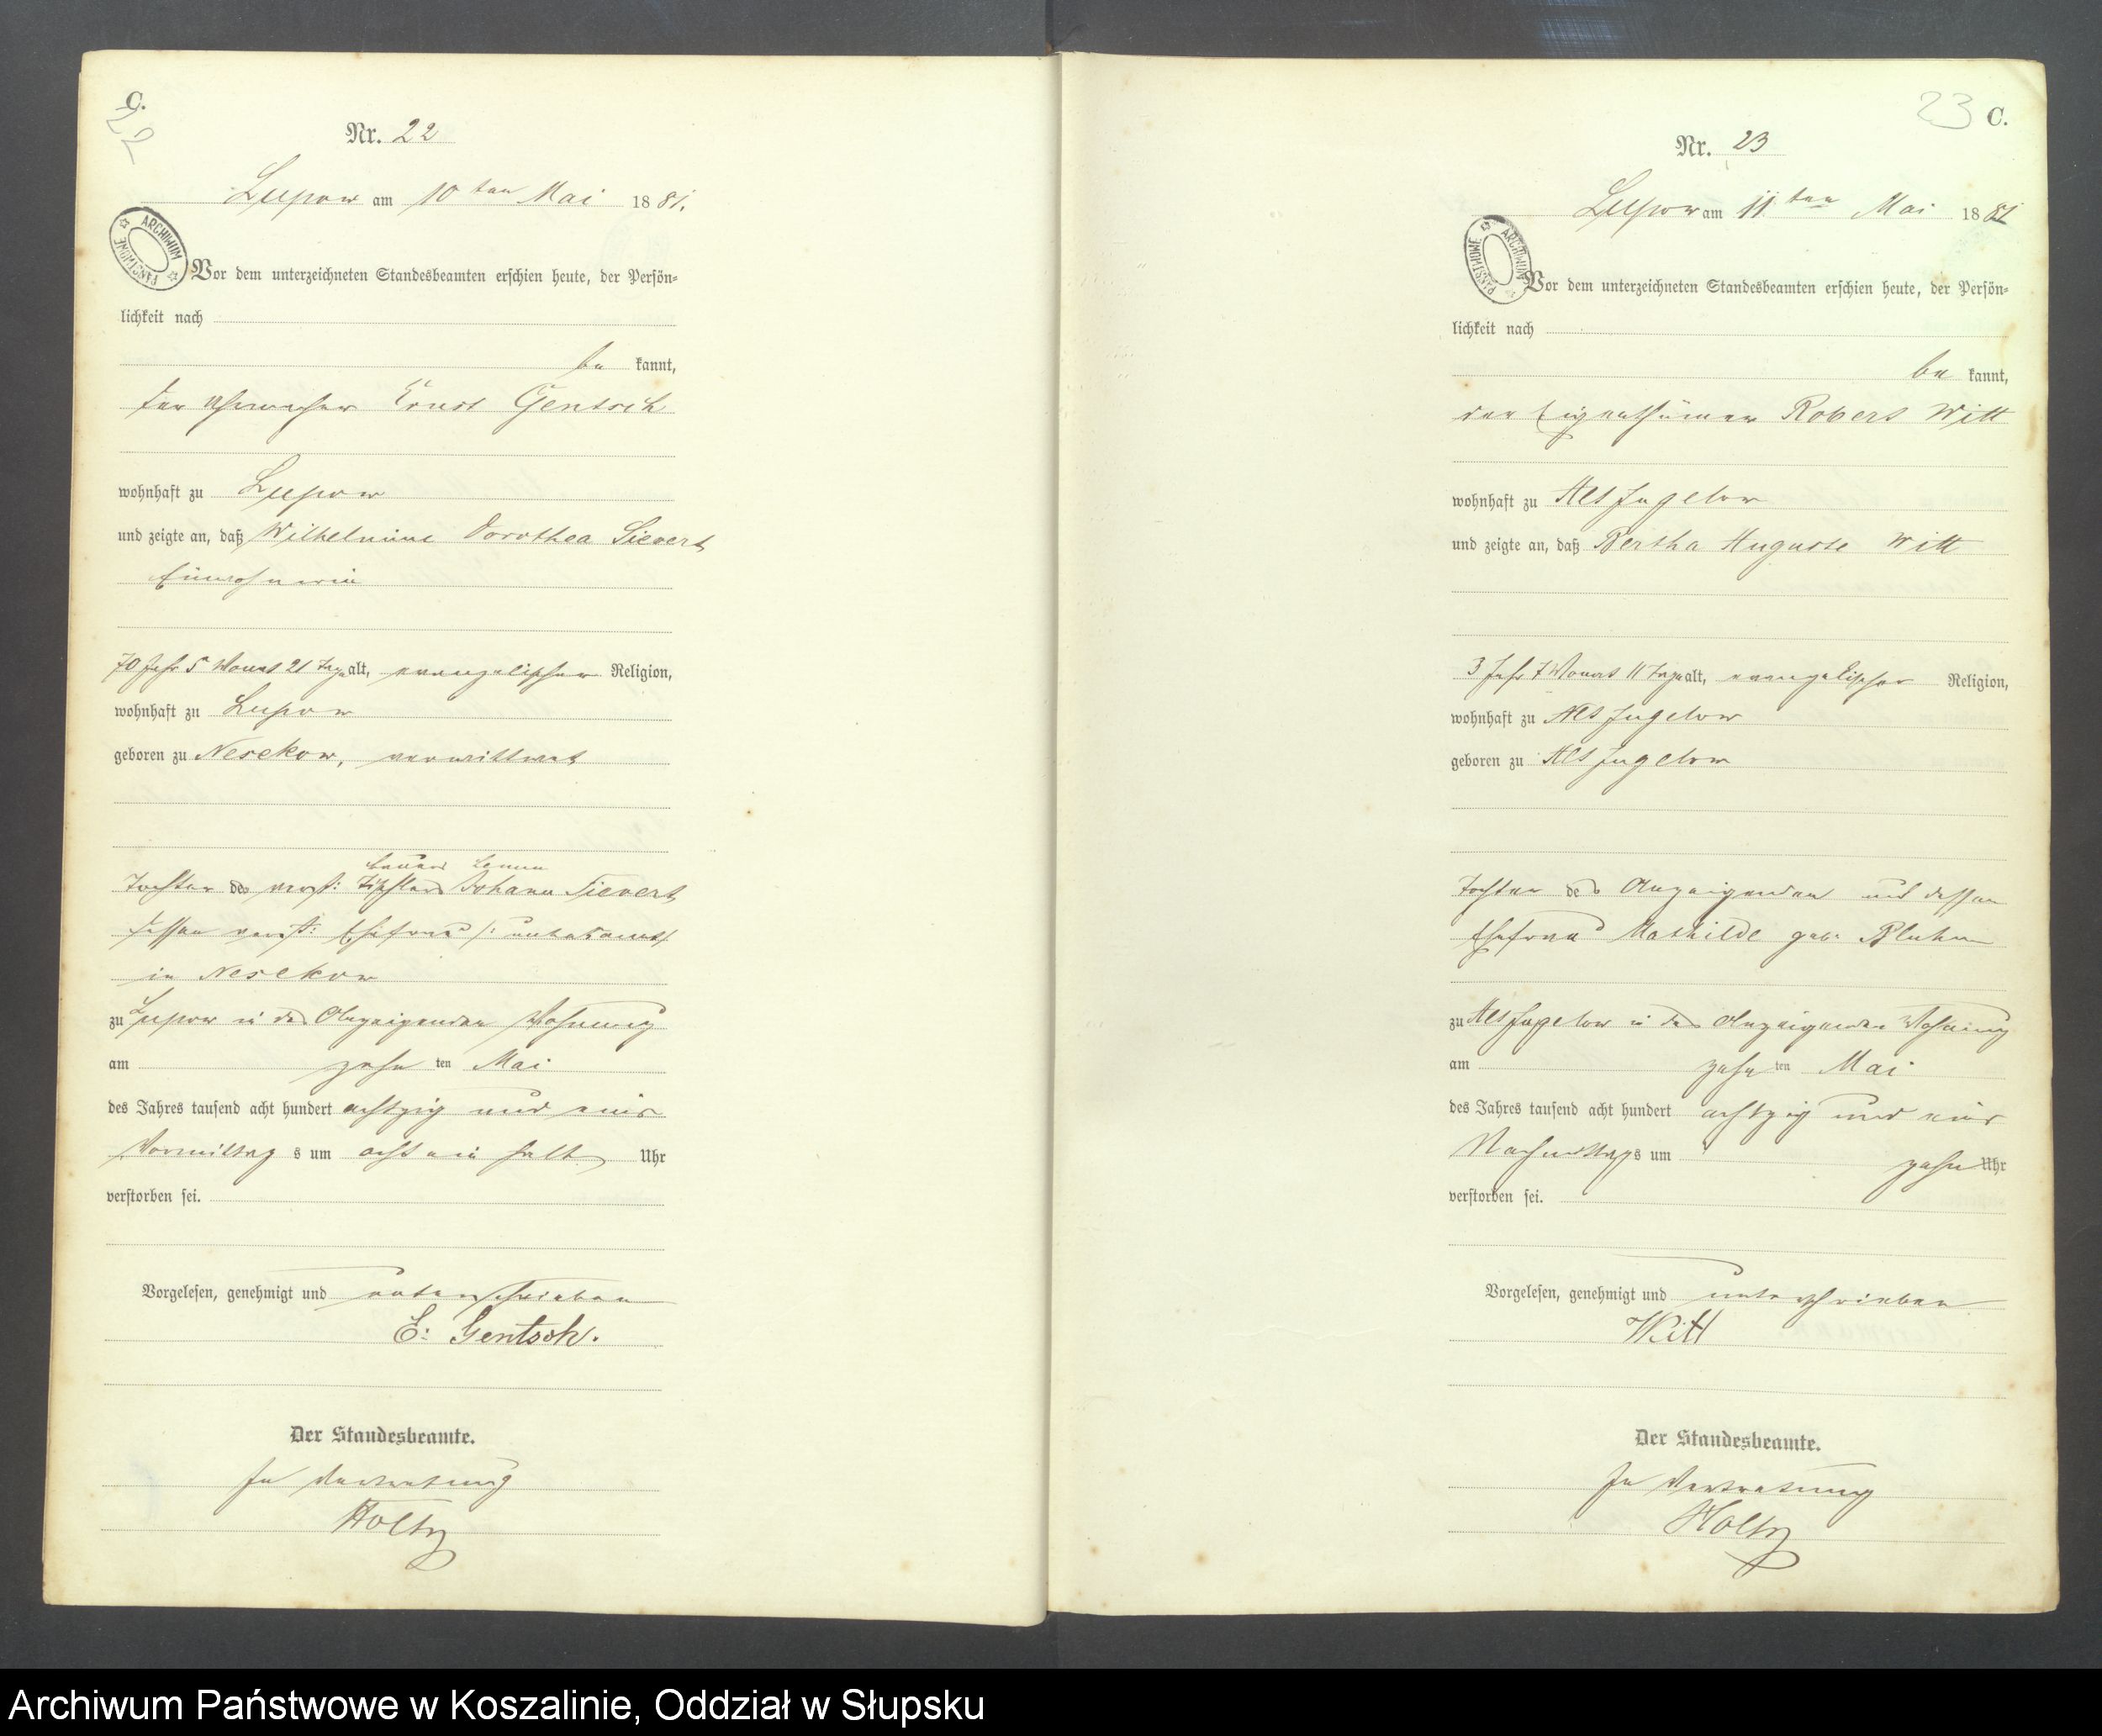 C.
22
Nr. 22
Lupow am 10 ten Mai 1881.
ARCHIWUM PAŃSTWOWE
Vor dem unterzeichneten Standesbeamten erschien heute, der Persön-
lichkeit nach
be kannt,
der Uhrmacher Ernst Gentsch
wohnhaft zu Lupow
und zeigte an, daß Wilhelmine Dorothea Sievert
Einwohnerin
70 Jahr 5 Monat 21 Tage alt, evangelischer Religion,
wohnhaft zu Lupow
geboren zu Nesekow, verwittwet
Tochter des verst: Johann Sievert
dessen verst: Ehefrau /: unbekannt/
in Nesekow
zu Lupow in des Anzeigenden Wohnung
am zehn ten Mai
des Jahres tausend acht hundert achtzig und eins
Vormittag s um acht ein halb Uhr
verstorben sei.
Vorgelesen, genehmigt und unterschrieben
E: Gentsch.
Der Standesbeamte.
In Vertretung
Holtz
23 C.
Nr. 23
Lupow am 11 ten Mai 1881
ARCHIWUM PAŃSTWOWE
Vor dem unterzeichneten Standesbeamten erschien heute, der Persön-
lichkeit nach
be kannt,
der Eigenthümer Robert Witt
wohnhaft zu Alt Jugelow
und zeigte an, daß Bertha Auguste Witt
3 Jahr 7 Monat 11 Tage alt, evangelischer Religion,
wohnhaft zu Alt Jugelow
geboren zu Alt Jugelow
Tochter des Anzeigenden und dessen
Ehefrau Mathilde geb. Bluhm
zu Alt Jugelow in des Anzeigenden Wohnung
am zehn ten Mai
des Jahres tausend acht hundert achtzig und eins
Nachmittags um zehn Uhr
verstorben sei.
Vorgelesen, genehmigt und unterschrieben
Witt
Der Standesbeamte.
In Vertretung
Holtz
Archiwum Państwowe w Koszalinie, Oddział w Słupsku